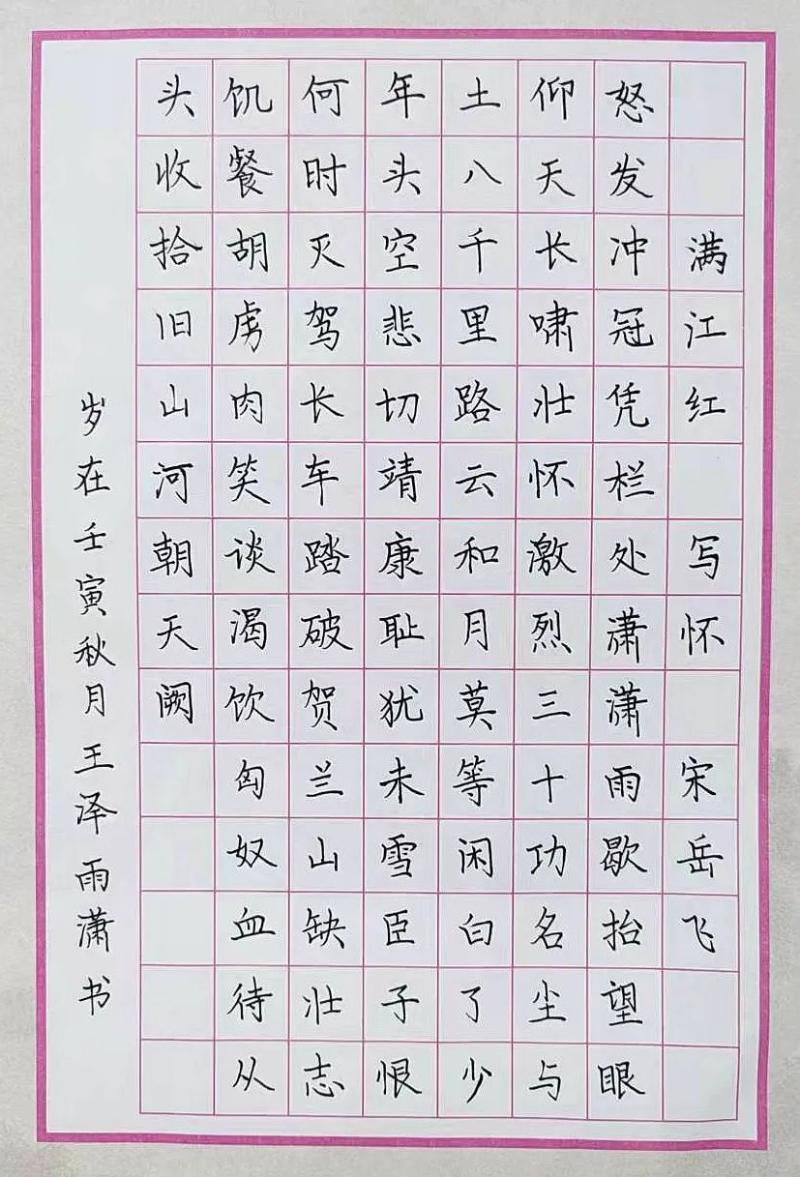 满江红 写怀 宋岳飞
怒发冲冠凭栏处潇潇雨歇抬望眼
仰天长啸壮怀激烈三十功名尘与
土八千里路云和月莫等闲白了少
年头空悲切靖康耻犹未雪臣子恨
何时灭驾长车踏破贺兰山缺壮志
饥餐胡虏肉笑谈渴饮匈奴血待从
头收拾旧山河朝天阙
岁在壬寅秋月王泽雨潇书